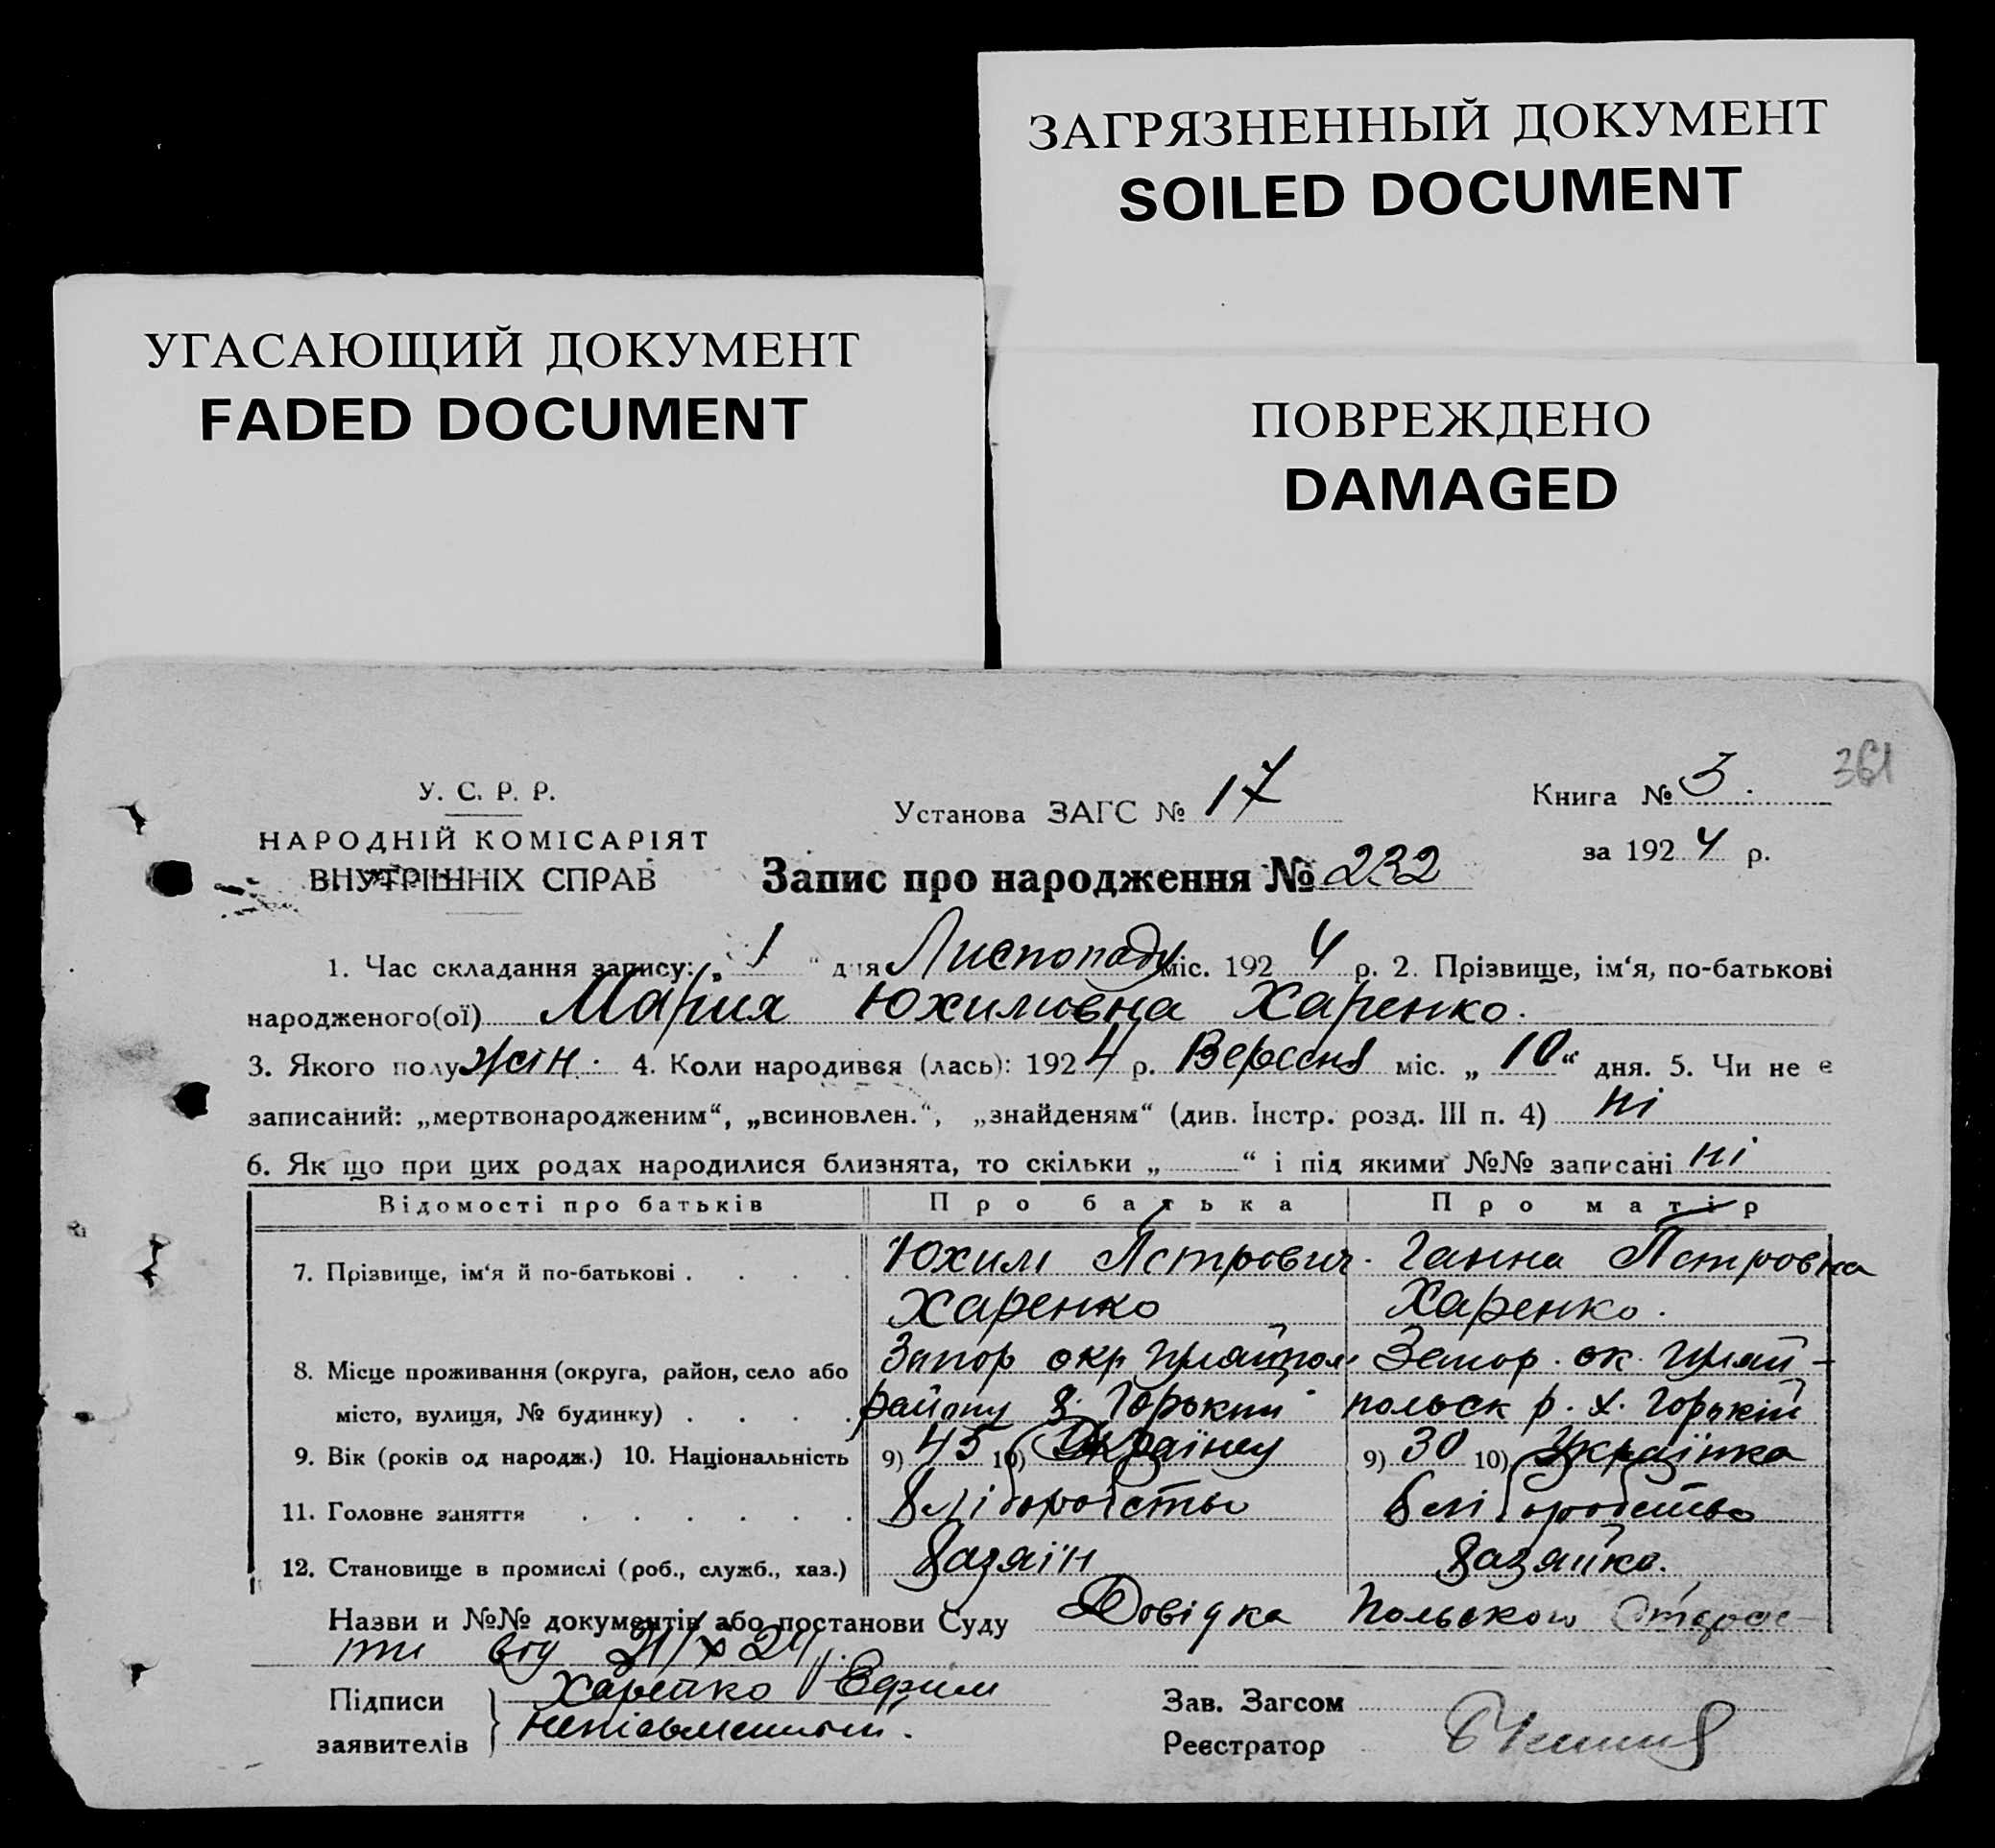 ЗАГРЯЗНЕННЫЙ ДОКУМЕНТ
SOILED DOCUMENT
УГАСАЮЩИЙ ДОКУМЕНТ
FADED DOCUMENT
ПОВРЕЖДЕНО
DAMAGED
361
У. С. Р. Р.
НАРОДНІЙ КОМІСАРІЯТ
ВНУТРІШНІХ СПРАВ
Установа ЗАГС № 17
Книга № 3.
за 1924 р.
Запис про народження № 232
1. Час складання запису: „1“ дня Листопаду міс. 1924 р. 2. Прізвище, ім‘я, по-батькові
народженого(ої) Мария Юхимовна Харенко.
3. Якого полу жін. 4. Коли народився (лась): 1924 р. Вересня міс. „10“ дня. 5. Чи не є
записаний: „мертвонародженим“, „всиновлен.“, „знайденям“ (див. Інстр. розд. III п. 4) ні
6. Як що при цих родах народилися близнята, то скільки „ “ і під якими №№ записані ні
Відомості про батьків Про батька Про матір
7. Прізвище, ім‘я й по-батькові . . . . Юхим Петрович. Ганна Петровна
Харенко Харенко.
8. Місце проживання (округа, район, село або Запор окр Запор. ок.
місто, вулиця, № будинку) . . . . району х. Горький польск р. х. Горькій
9. Вік (років од народж.) 10. Національність 9) 45 10) Українец 9) 30 10) Українка
11. Головне заняття . . . . . . Хліборобство Хліборобство
12. Становище в промислі (роб., служб., хаз.) Хазяін Хазяйка.
Назви и №№ документів або постанови Суду Довідка Польської
від 21/X 24
Підписи Харенко Ефим
заявителів неписьменный.
Зав. Загсом
Реєстратор